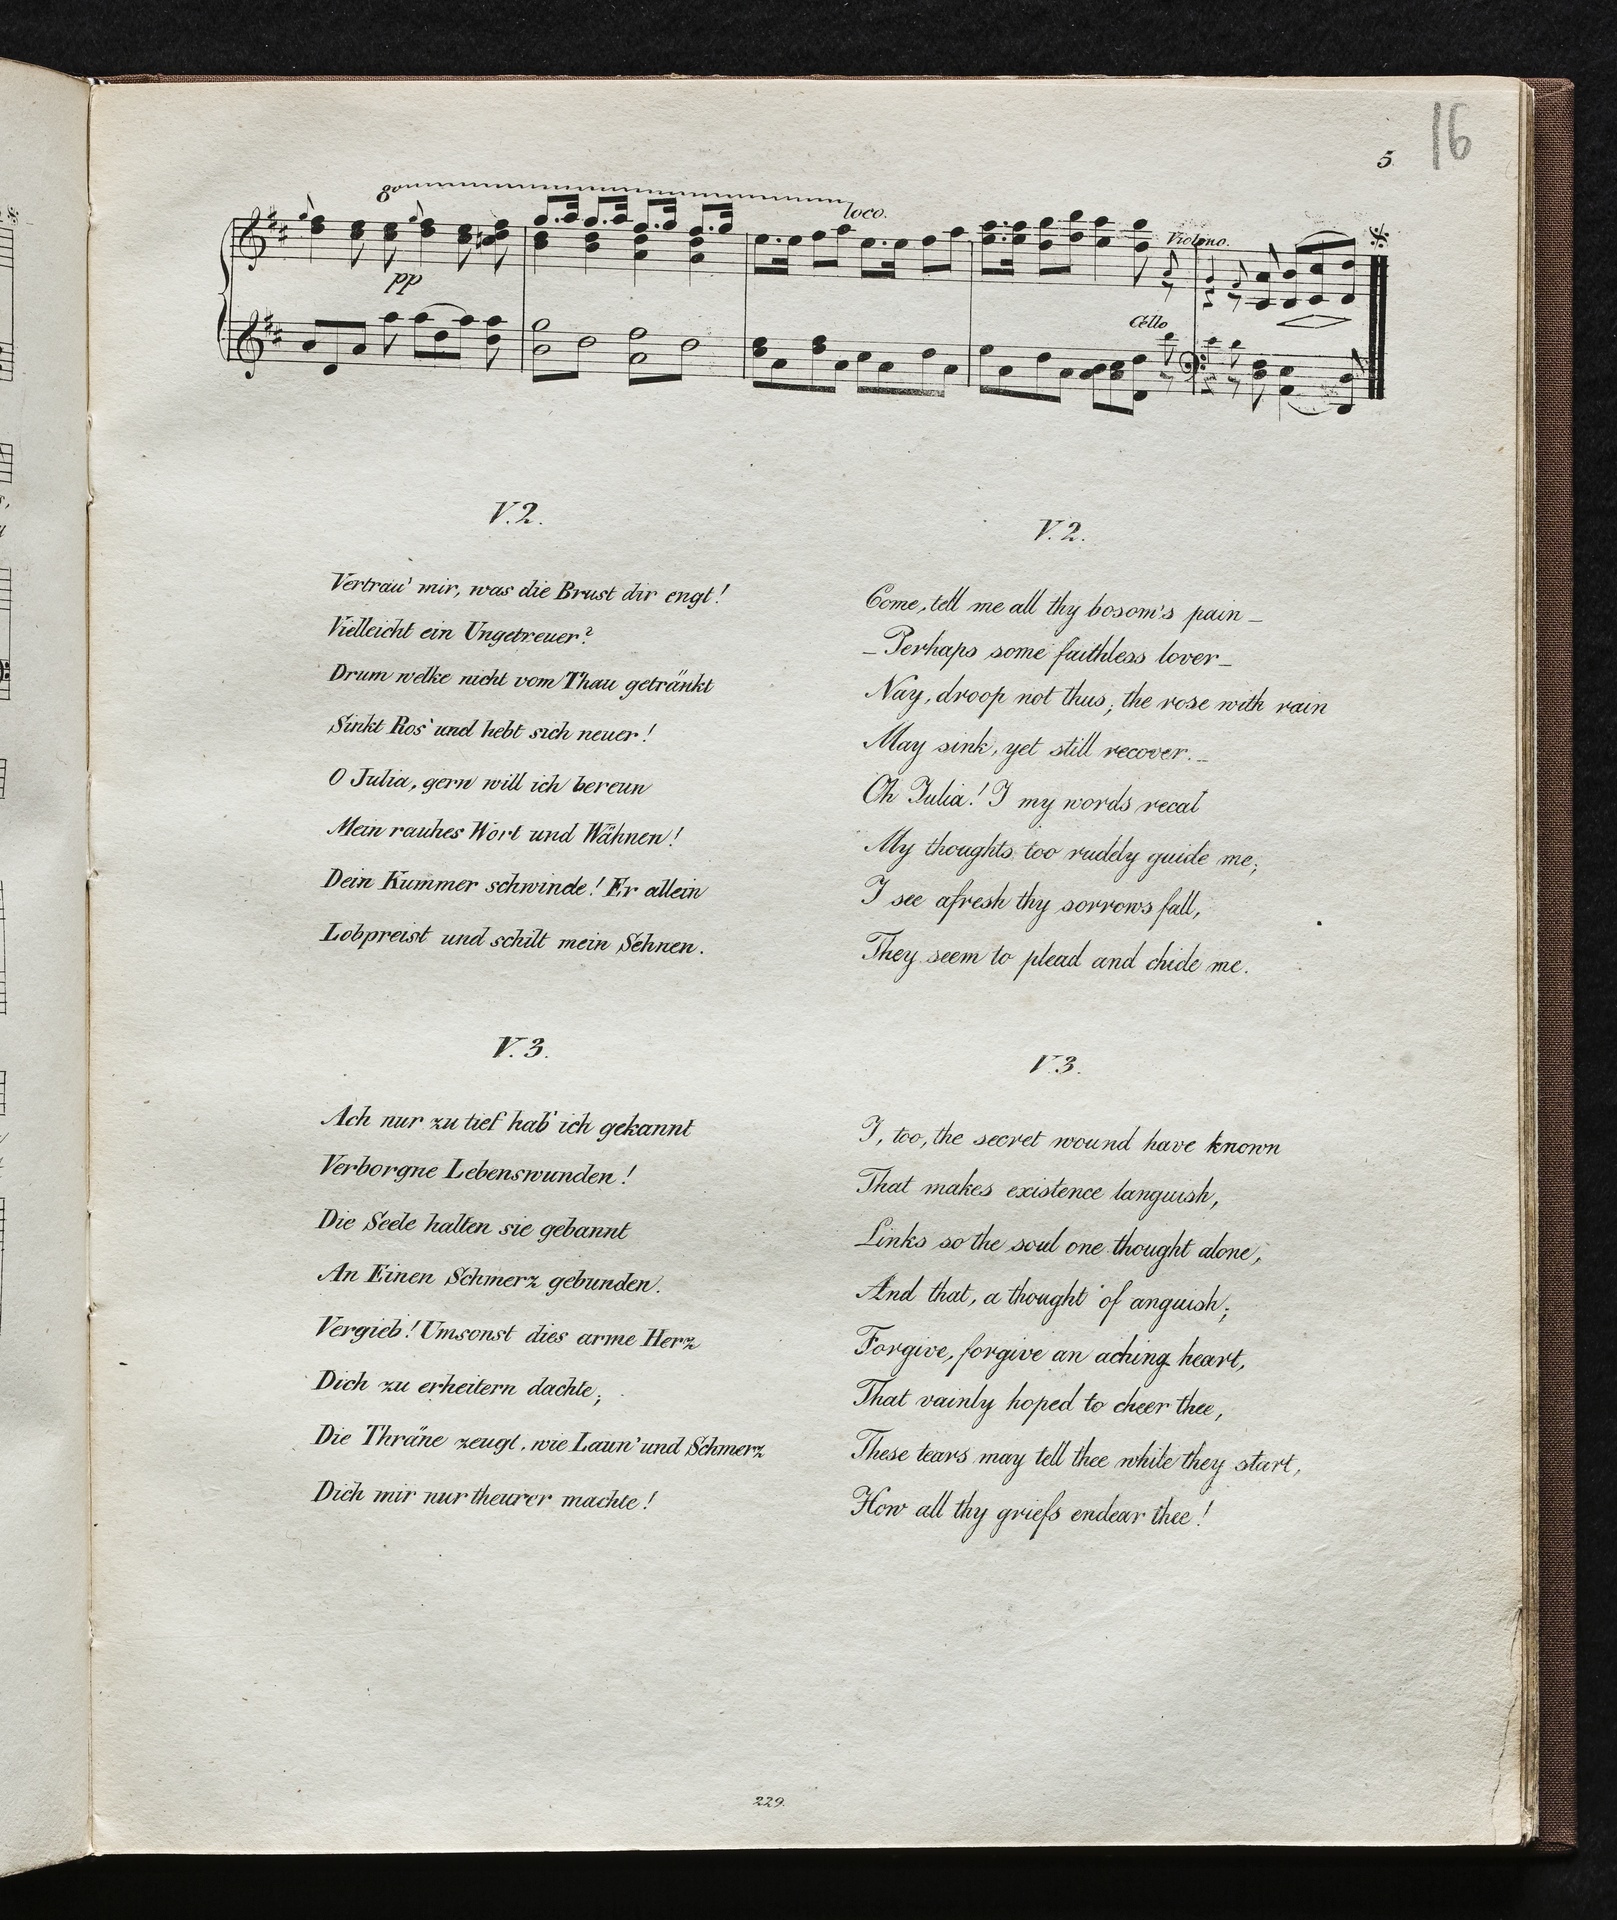 16
5
8va
loco.
Violino.
pp
Cello
V. 2.
Vertrau' mir, was die Brust dir engt!
Vielleicht ein Ungetreuer?
Drum welke nicht vom Thau getränkt
Sinkt Ros' und hebt sich neuer!
O Julia, gern will ich bereun
Mein rauhes Wort und Wähnen!
Dein Kummer schwinde! Er allein
Lobpreist und schilt mein Sehnen.
V. 3.
Ach nur zu tief hab' ich gekannt
Verborgne Lebenswunden!
Die Seele halten sie gebannt
An Einen Schmerz gebunden.
Vergieb! Umsonst dies arme Herz
Dich zu erheitern dachte;
Die Thräne zeugt, wie Laun' und Schmerz
Dich mir nur theurer machte!
V. 2.
Come, tell me all thy bosom's pain_
_Perhaps some faithless lover_
Nay, droop not thus; the rose with rain
May sink, yet still recover._
Oh Julia! I my words recal
My thoughts too rudely guide me;
I see afresh thy sorrows fall,
They seem to plead and chide me.
V. 3.
I, too, the secret wound have known
That makes existence languish,
Links so the soul one thought alone,
And that, a thought of anguish;
Forgive, forgive an aching heart,
That vainly hoped to cheer thee,
These tears may tell thee while they start,
How all thy griefs endear thee!
229.